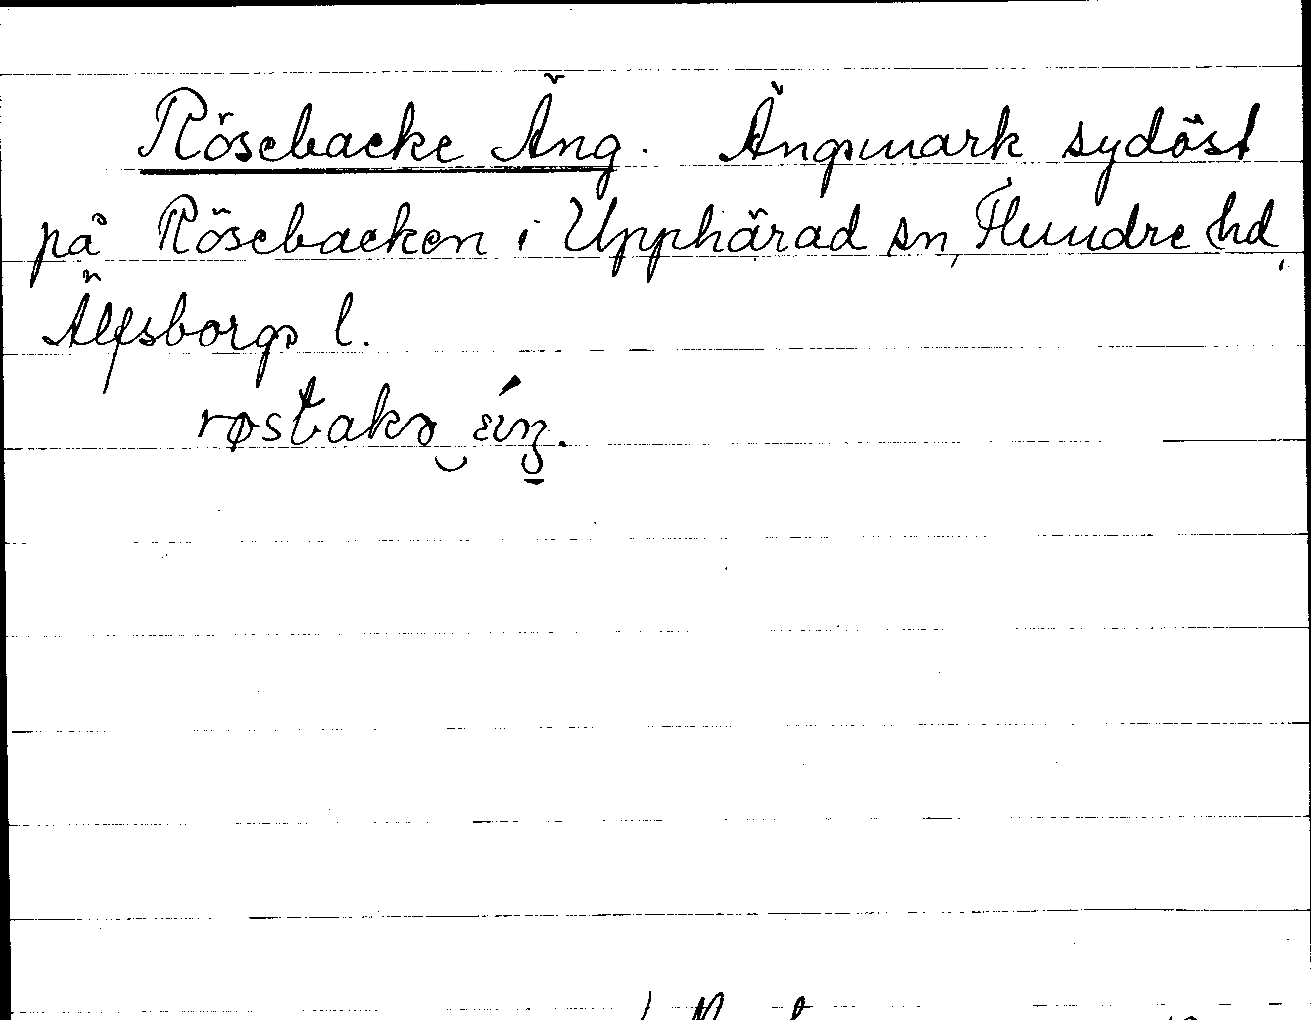 Rösebacke Äng. Ängsmark sydöst
på Rösebacken i Upphärad sn, Flundre hd,
Älfsborgs l.